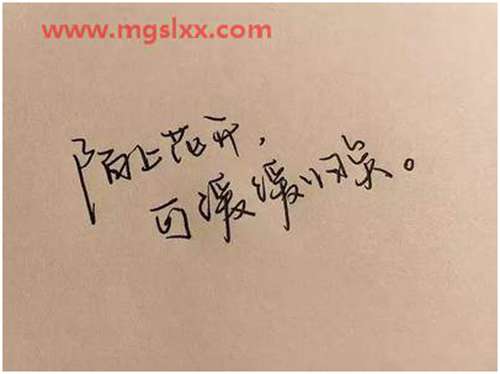 www.mgslxx.com
陌上花开，
可缓缓归矣。